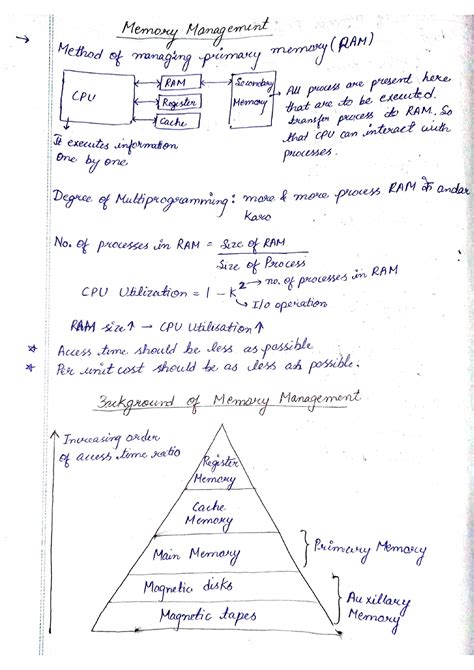 Memory Management
→ Method of managing primary memory (RAM)
CPU
RAM
Register
Cache
Secondary
Memory
→ All process are present here
that are to be executed.
transfer process to RAM. So
that CPU can interact with
processes.
It executes information
one by one
Degree of Multiprogramming: more & more process RAM के andar
karo
No. of processes in RAM = Size of RAM
Size of Process
CPU Utilization = 1 - K² → no. of processes in RAM
↳ I/o operation
RAM size↑ → CPU Utilisation↑
* Access time should be less as possible
* Per unit cost should be as less as possible.
Background of Memory Management
↑ Increasing order
of access time ratio
Register
Memory
Cache
Memory
Main Memory
} Primary Memory
Magnetic disks
Magnetic tapes
} Auxillary
Memory